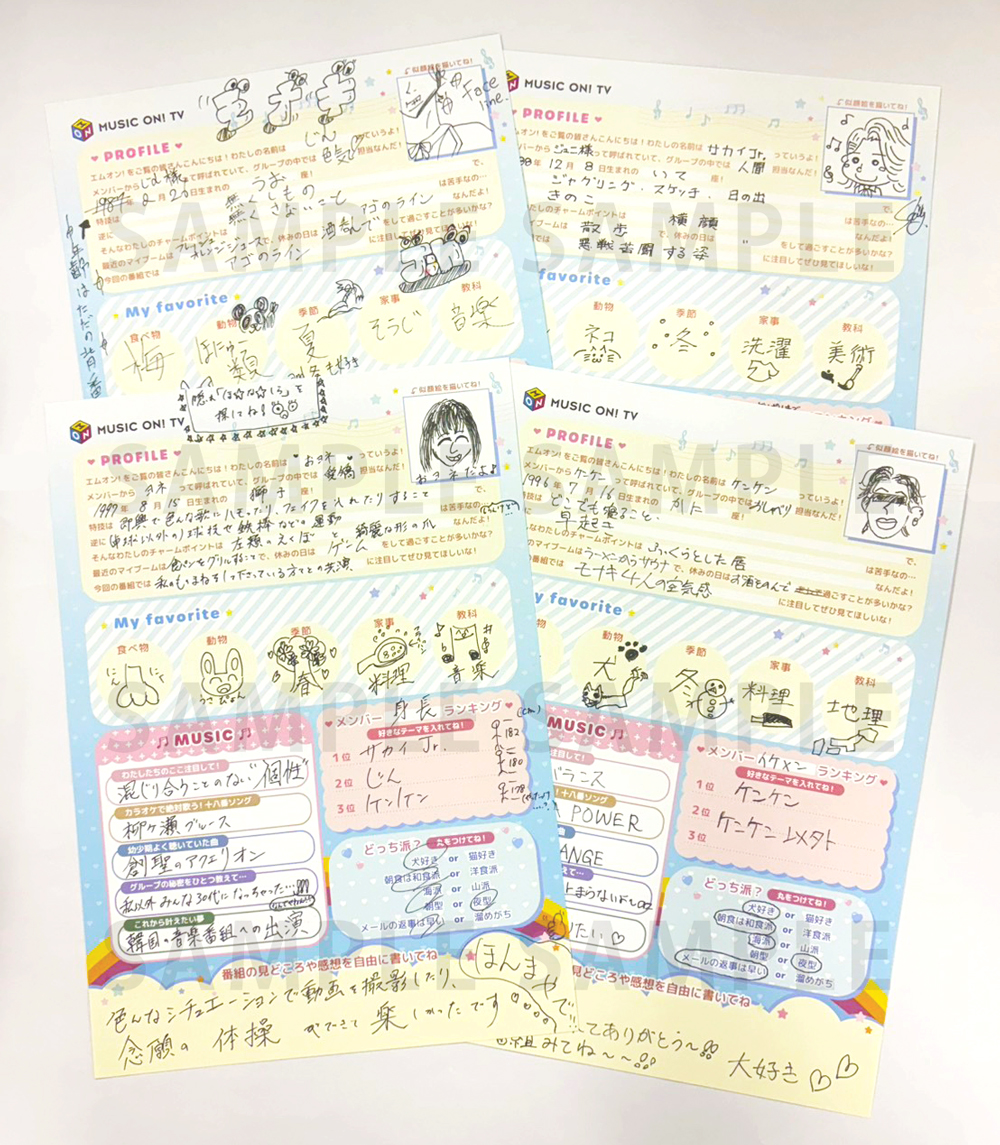 MUSIC ON! TV
モナキ
似顔絵を描いてね!
Face line.
PROFILE
エムオン!をご覧の皆さんこんにちは!わたしの名前は じん っていうよ!
メンバーから じん様 って呼ばれていて、グループの中では 色気 担当なんだ!
1987年2月20日生まれの うお 座!
特技は 無くしもの で、
逆に 無くさないこと は苦手なの…
そんなわたしのチャームポイントは アゴのライン なんだよ!
最近のマイブームは フレッシュオレンジジュースで、休みの日は 酒呑んで をして過ごすことが多いかな?
今回の番組では アゴのライン に注目してぜひ見てほしいな!
年齢はただの背番
My favorite
食べ物 動物 季節 家事 教科
梅 ほにゅー類 夏 そうじ 音楽
冬も好き
MUSIC ON! TV
似顔絵を描いてね!
PROFILE
エムオン!をご覧の皆さんこんにちは!わたしの名前は サカイJr. っていうよ!
メンバーから ジュニ様 って呼ばれていて、グループの中では 人間 担当なんだ!
12月8日生まれの いて 座!
ジャグリング・スケッチ・日の出 で、
きのこ は苦手なの…
わたしのチャームポイントは 横顔 なんだよ!
散歩 で、休みの日は 〃 をして過ごすことが多いかな?
悪戦苦闘する姿 に注目してぜひ見てほしいな!
favorite
動物 季節 家事 教科
ネコ 冬 洗濯 美術
MUSIC ON! TV
隠れ「は☆な☆くら」を
探してね!
似顔絵を描いてね!
おヨネだよ
PROFILE
エムオン!をご覧の皆さんこんにちは!わたしの名前は おヨネ っていうよ!
メンバーから ヨネ って呼ばれていて、グループの中では 愛嬌 担当なんだ!
1999年8月15日生まれの 獅子 座!
特技は 即興で色んな歌にハモったり、フェイクを入れたりすること
逆に 卓球以外の球技や鉄棒などの運動 は苦手なの…
そんなわたしのチャームポイントは 左頬のえくぼ と 綺麗な形の爪 なんだよ!
最近のマイブームは 食パンをグリルすること で、休みの日は ゲーム をして過ごすことが多いかな?
今回の番組では 私のものまねをして下さっている方との共演 に注目してぜひ見てほしいな!
My favorite
食べ物 動物 季節 家事 教科
にんにく うさぴょん 春 料理 音楽
MUSIC
わたしたちのここ注目して!
混じり合うことのない“個性”
カラオケで絶対歌う!十八番ソング
柳ヶ瀬ブルース
幼少期よく聴いていた曲
創聖のアクエリオン
グループの秘密をひとつ教えて…
私以外みんな30代になっちゃった…
これから叶えたい夢
韓国の音楽番組への出演
メンバー 身長 ランキング
(cm)
好きなテーマを入れてね!
1位 サカイJr. 182
2位 じん 180
3位 ケンケン 178
どっち派? 丸をつけてね!
犬好き or 猫好き
朝食は和食派 or 洋食派
海派 or 山派
朝型 or 夜型
メールの返事は早い or 溜めがち
番組の見どころや感想を自由に書いてね
色んなシチュエーションで動画を撮影したり、
念願の 体操 ができて楽しかったです
ほんまやで!!
MUSIC ON! TV
似顔絵を描いてね!
PROFILE
エムオン!をご覧の皆さんこんにちは!わたしの名前は ケンケン っていうよ!
メンバーから ケンケン って呼ばれていて、グループの中では おしゃべり 担当なんだ!
1996年7月16日生まれの かに 座!
特技は どこでも寝ること で、
逆に 早起き は苦手なの…
そんなわたしのチャームポイントは ふっくらとした唇 なんだよ!
最近のマイブームは ラーメンからサウナ で、休みの日は お酒をのんで 過ごすことが多いかな?
今回の番組では モナキ4人の空気感 に注目してぜひ見てほしいな!
My favorite
動物 季節 家事 教科
犬 冬 料理 地理
MUSIC
注目して!
バランス
十八番ソング
POWER
ANGE
メンバー イケメン ランキング
好きなテーマを入れてね!
1位 ケンケン
2位 ケンケン以外
3位
どっち派? 丸をつけてね!
犬好き or 猫好き
朝食は和食派 or 洋食派
海派 or 山派
朝型 or 夜型
メールの返事は早い or 溜めがち
見どころや感想を自由に書いてね
てありがとう〜
組みてね〜〜 大好き♡♡
SAMPLE SAMPLE
SAMPLE SAMPLE
SAMPLE SAMPLE
SAMPLE SAMPLE